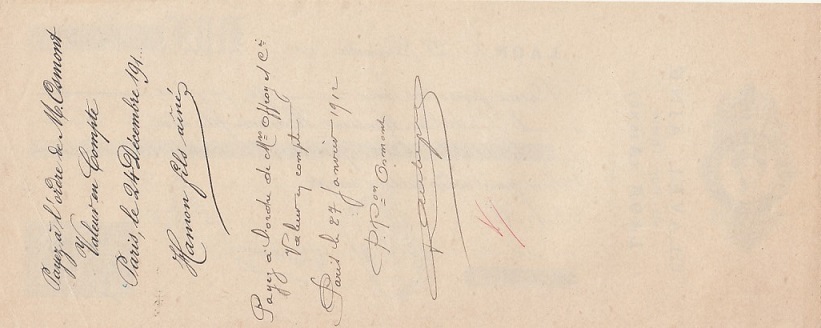 Payez à l'ordre de M. Osmont
Valeur en Compte
Paris, le 24 Décembre 191
Hamon fils aîné
Payez à l'ordre de Mrs Offroy et Cie
Valeur en compte
Paris le 27 janvier 1912
P. Pon Osmont